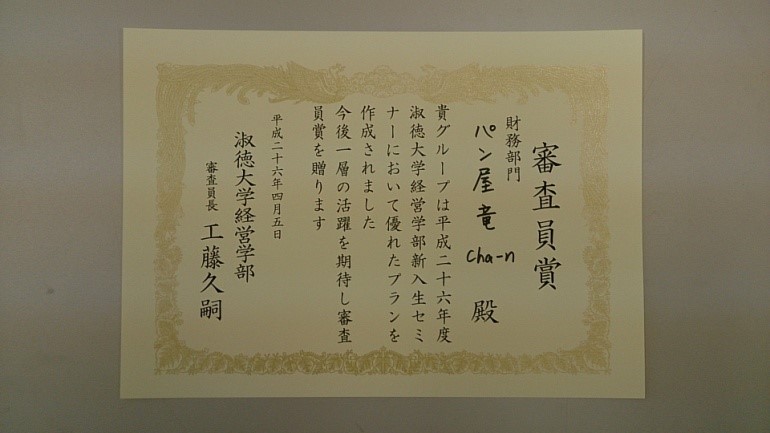 審査員賞
財務部門
パン屋竜cha-n 殿
貴グループは平成二十六年度
淑徳大学経営学部新入生セミ
ナーにおいて優れたプランを
作成されました
今後一層の活躍を期待し審査
員賞を贈ります
平成二十六年四月五日
淑徳大学経営学部
審査員長 工藤久嗣